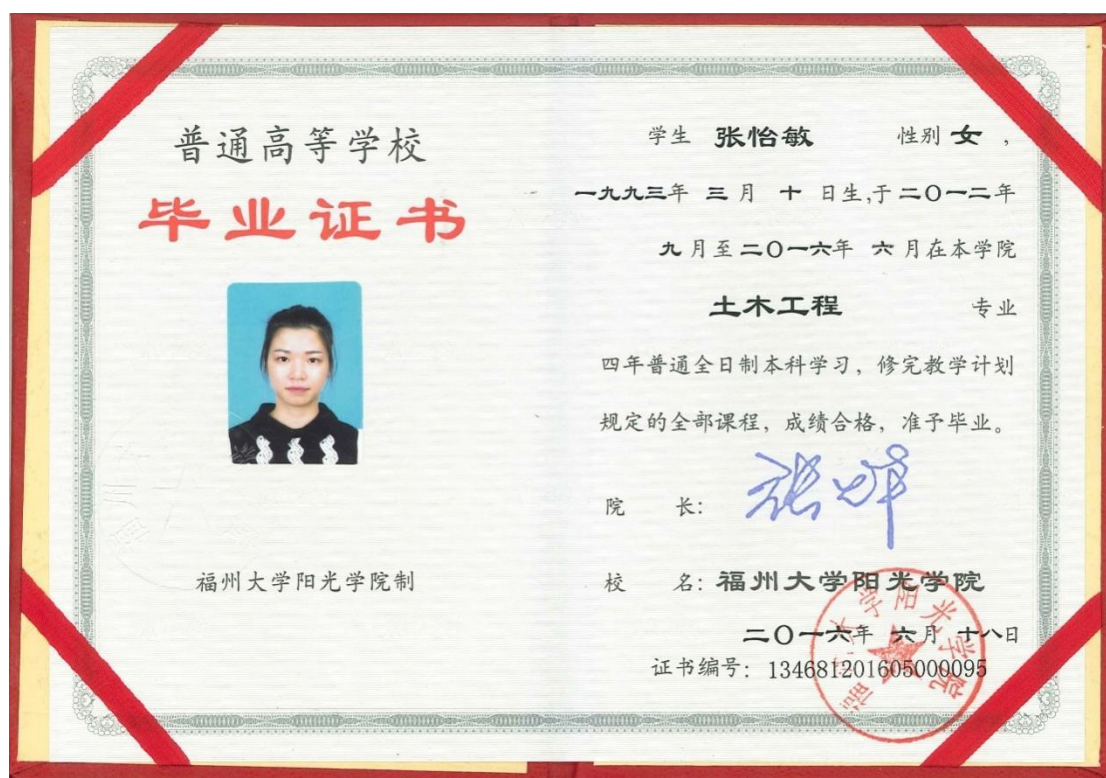 普通高等学校
毕业证书
福州大学阳光学院制
学生 张怡敏 性别 女，
一九九三年 三月 十 日生,于二〇一二年
九月至二〇一六年 六月在本学院
土木工程 专业
四年普通全日制本科学习，修完教学计划
规定的全部课程，成绩合格，准予毕业。
院 长:
校 名: 福州大学阳光学院
二〇一六年 六月 十八日
证书编号: 134681201605000095
福州大学阳光学院